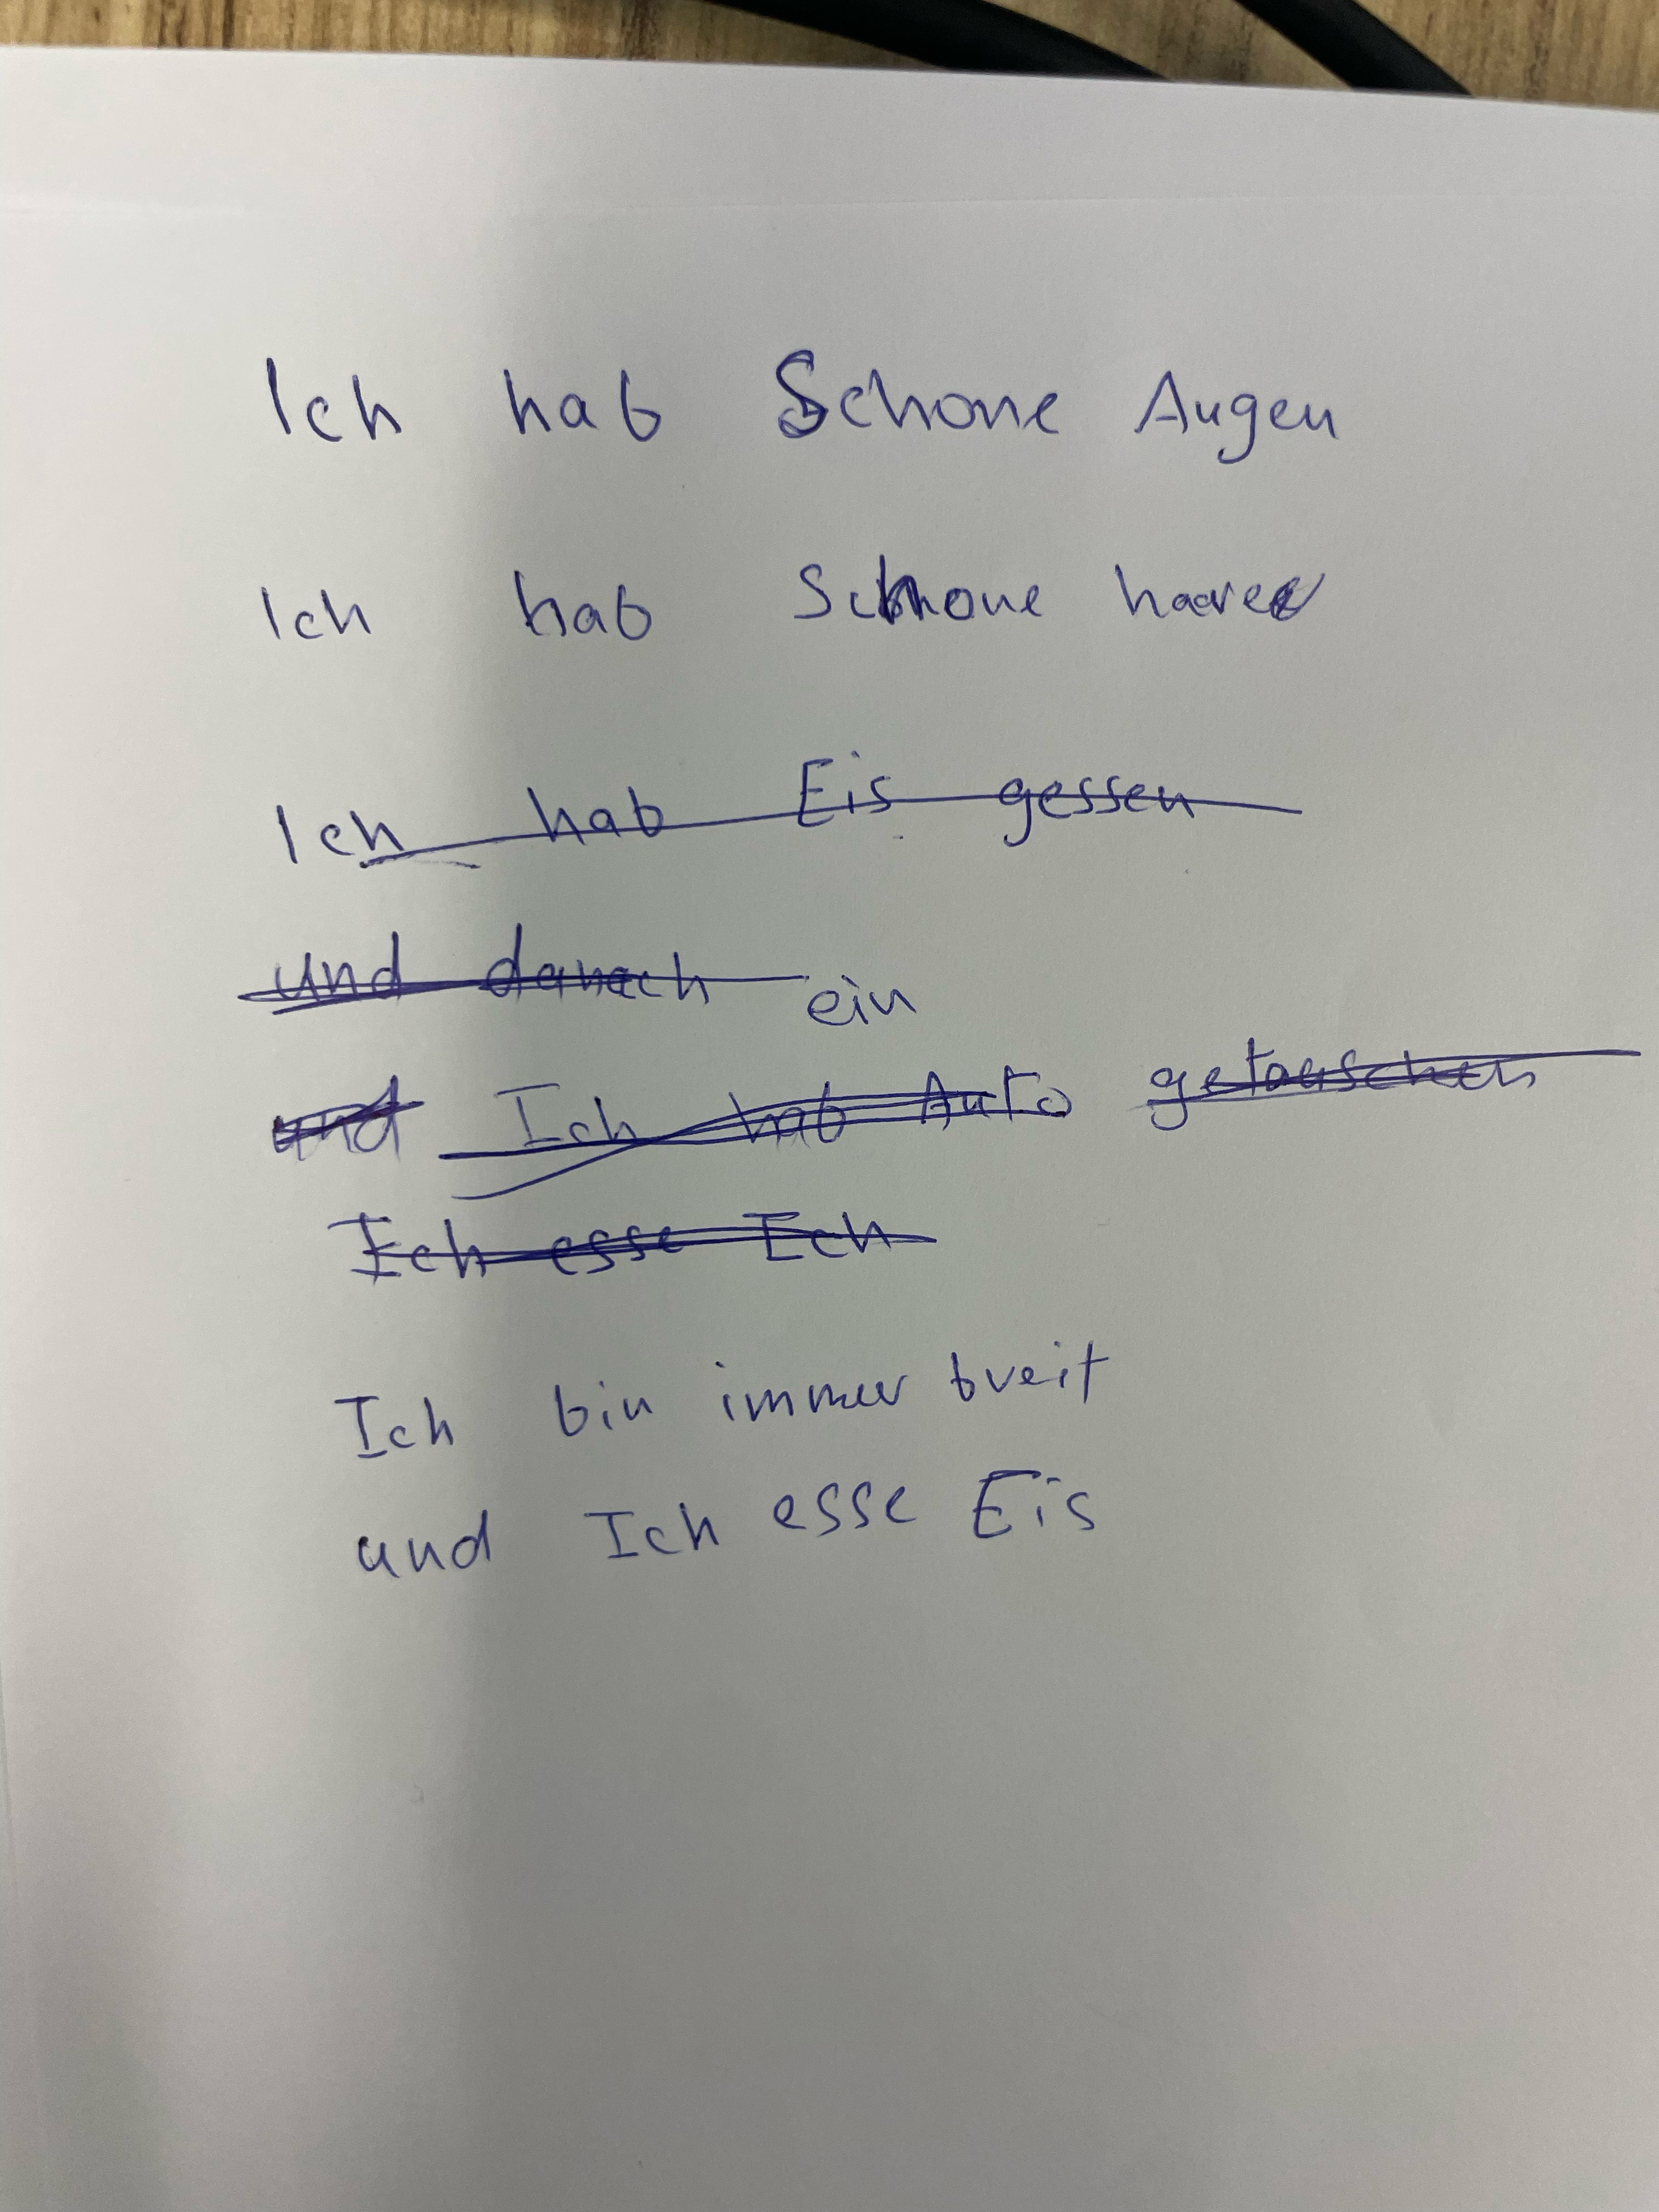 Ich hab Schone Augen
Ich hab Schone haare
Ich hab Eis gessen
und danach
ein
und Ich hab Auto getauschen
Ich esse Ich
Ich bin immer breit
und Ich esse Eis